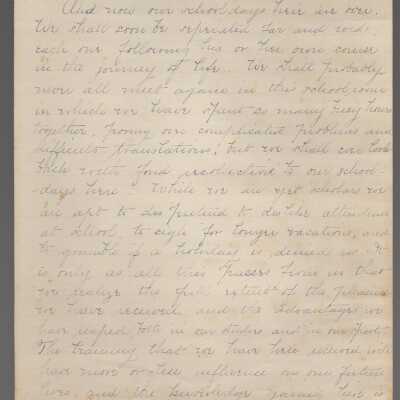 And now our school days here are over.
We shall soon be seperated far and wide,
each one following his or her own course
in the journey of life. We shall probably
never all meet again in the school room
in which we have spent so many busy hours
together, poring over complicated problems and
difficult translations; but we shall ever look
back with fond recollections to our school-
days here. While we are yet scholars we
are apt to to dislike attendance
at school, to sigh for longer vacations, and
to grumble if a holiday is denied us. It
is only as all this passes from us that
we realize the full extent of the pleasures
we have received and the advantages we
have reaped both in our studies and in our sports.
The training that we have here received will
have more or less influence on our future
lives, and the knowledge gained here is